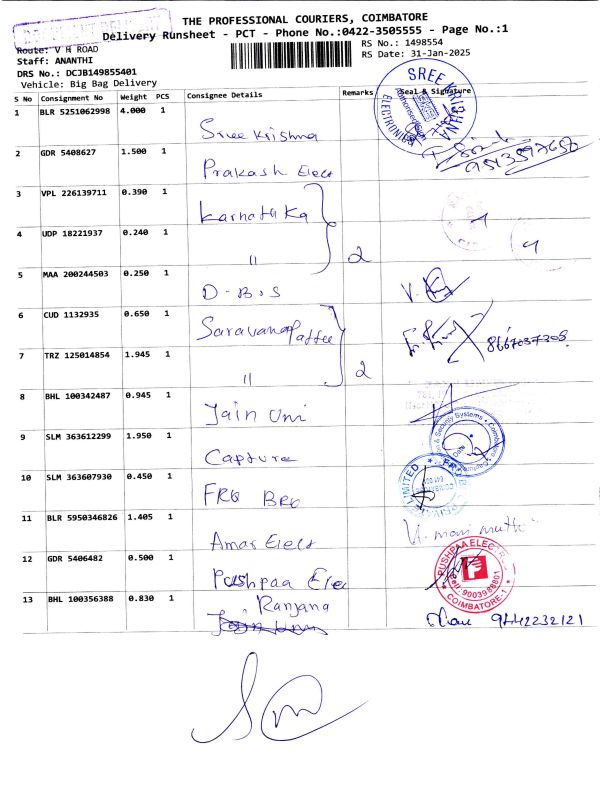 THE PROFESSIONAL COURIERS, COIMBATORE
Delivery Runsheet - PCT - Phone No.:0422-3505555 - Page No.:1
Route: V H ROAD
RS No.: 1498554
Staff: ANANTHI
RS Date: 31-Jan-2025
DRS No.: DCJB149855401
Vehicle: Big Bag Delivery
S No Consignment No Weight PCS Consignee Details Remarks Seal & Signature
1 BLR 5251062998 4.000 1 Sree Krishna
SREE KRISHNA
ELECTRONICS
2 GDR 5408627 1.500 1 Prakash Elect
3 VPL 226139711 0.390 1 Karnataka
4 UDP 18221937 0.240 1 " 2
5 MAA 200244503 0.250 1 D-B.S
6 CUD 1132935 0.650 1 Saravana
7 TRZ 125014854 1.945 1 " 2
8 BHL 100342487 0.945 1 Jain Uni
9 SLM 363612299 1.950 1 Capture
& Security Systems
10 SLM 363607930 0.450 1 FRG BRG
11 BLR 5950346826 1.405 1 Amar Elect
12 GDR 5406482 0.500 1 Pushpaa Elec
PUSHPAA ELEC
Cell: 9003988801
COIMBATORE-1
13 BHL 100356388 0.830 1 Ranjana
9442232121